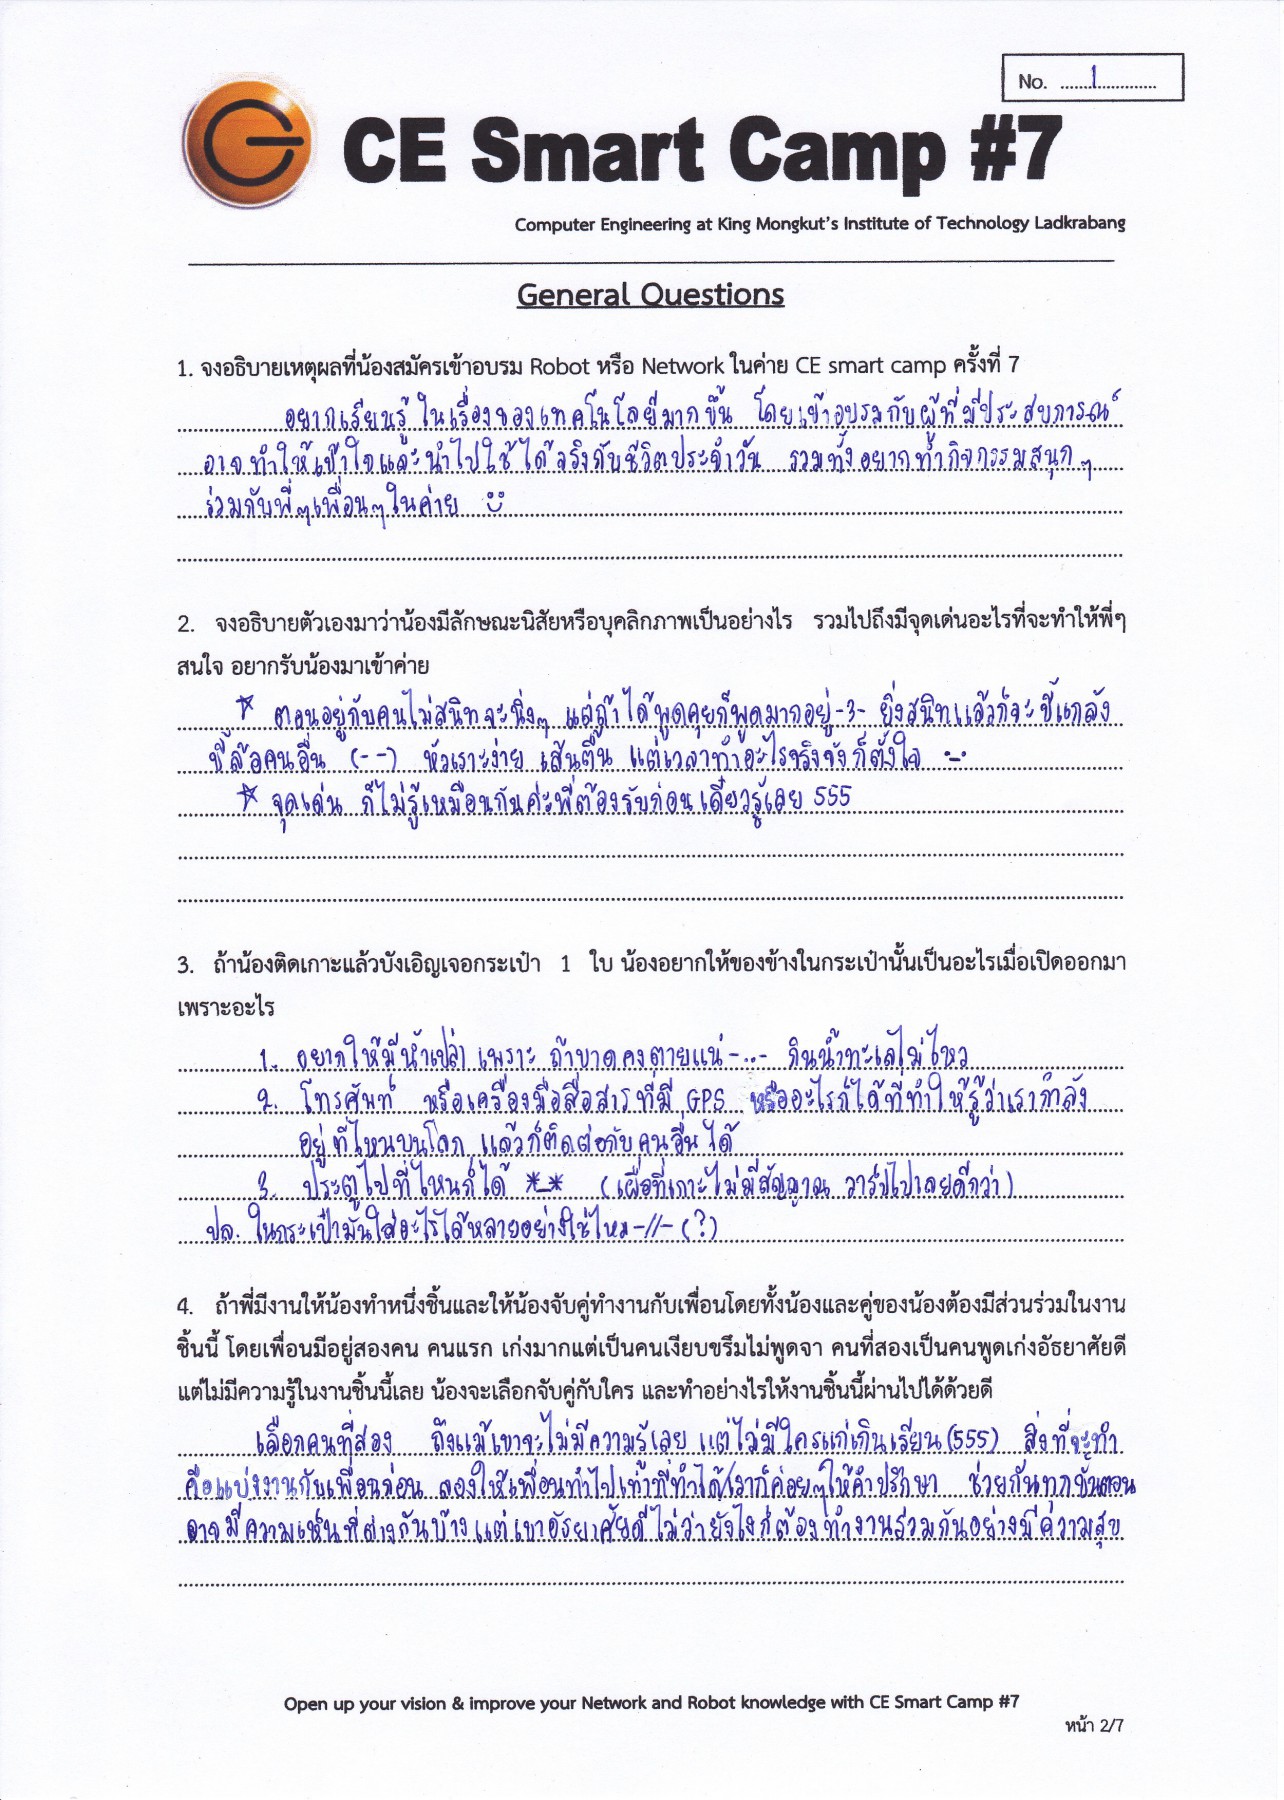 No. 1
CE Smart Camp #7
Computer Engineering at King Mongkut's Institute of Technology Ladkrabang
General Questions
1. จงอธิบายเหตุผลที่น้องสมัครเข้าอบรม Robot หรือ Network ในค่าย CE smart camp ครั้งที่ 7
อยากเรียนรู้ ในเรื่องของเทคโนโลยีมากขึ้น โดยเข้าอบรมกับผู้ที่มีประสบการณ์
อาจทำให้เข้าใจและนำไปใช้ได้จริงกับชีวิตประจำวัน รวมทั้งอยากทำกิจกรรมสนุกๆ
ร่วมกับพี่ๆเพื่อนๆในค่าย
2. จงอธิบายตัวเองมาว่าน้องมีลักษณะนิสัยหรือบุคลิกภาพเป็นอย่างไร รวมไปถึงมีจุดเด่นอะไรที่จะทำให้พี่ๆ
สนใจ อยากรับน้องมาเข้าค่าย
ตอนอยู่กับคนไม่สนิทจะนิ่งๆ แต่ถ้าได้พูดคุยก็พูดมากอยู่-3- ยิ่งสนิทแล้วก็จะขี้แกล้ง
ขี้ล้อคนอื่น (--) หัวเราะง่าย เส้นตื้น แต่เวลาทำอะไรจริงจังก็ตั้งใจ
จุดเด่น ก็ไม่รู้เหมือนกันค่ะพี่ต้องรับก่อนเดี๋ยวรู้เลย 555
3. ถ้าน้องติดเกาะแล้วบังเอิญเจอกระเป๋า 1 ใบ น้องอยากให้ของข้างในกระเป๋านั้นเป็นอะไรเมื่อเปิดออกมา
เพราะอะไร
1. อยากให้มีน้ำเปล่า เพราะ ถ้าขาดคงตายแน่-..- กินน้ำทะเลไม่ไหว
2. โทรศัพท์ หรือเครื่องมือสื่อสารที่มี GPS หรืออะไรก็ได้ที่ทำให้รู้ว่าเรากำลัง
อยู่ที่ไหนบนโลก แล้วก็ติดต่อกับคนอื่นได้
3. ประตูไปที่ไหนก็ได้ *_* (เผื่อที่เกาะไม่มีสัญญาณ วาร์ปไปเลยดีกว่า)
ปล. ในกระเป๋ามันใส่อะไรได้หลายอย่างใช่ไหม-//-(?)
4. ถ้าพี่มีงานให้น้องทำหนึ่งชิ้นและให้น้องจับคู่ทำงานกับเพื่อนโดยทั้งน้องและคู่ของน้องต้องมีส่วนร่วมในงาน
ชิ้นนี้ โดยเพื่อนมีอยู่สองคน คนแรก เก่งมากแต่เป็นคนเงียบขรึมไม่พูดจา คนที่สองเป็นคนพูดเก่งอัธยาศัยดี
แต่ไม่มีความรู้ในงานชิ้นนี้เลย น้องจะเลือกจับคู่กับใคร และทำอย่างไรให้งานชิ้นนี้ผ่านไปได้ด้วยดี
เลือกคนที่สอง ถึงแม้เขาจะไม่มีความรู้เลย แต่ไม่มีใครแก่เกินเรียน(555) สิ่งที่จะทำ
คือแบ่งงานกับเพื่อนก่อน ลองให้เพื่อนทำไปเท่าที่ทำได้/เราก็ค่อยๆให้คำปรึกษา ช่วยกันทุกขั้นตอน
อาจมีความเห็นที่ต่างกันบ้างแต่เขาอัธยาศัยดีไม่ว่ายังไงก็ต้องทำงานร่วมกันอย่างมีความสุข
Open up your vision & improve your Network and Robot knowledge with CE Smart Camp #7
หน้า 2/7